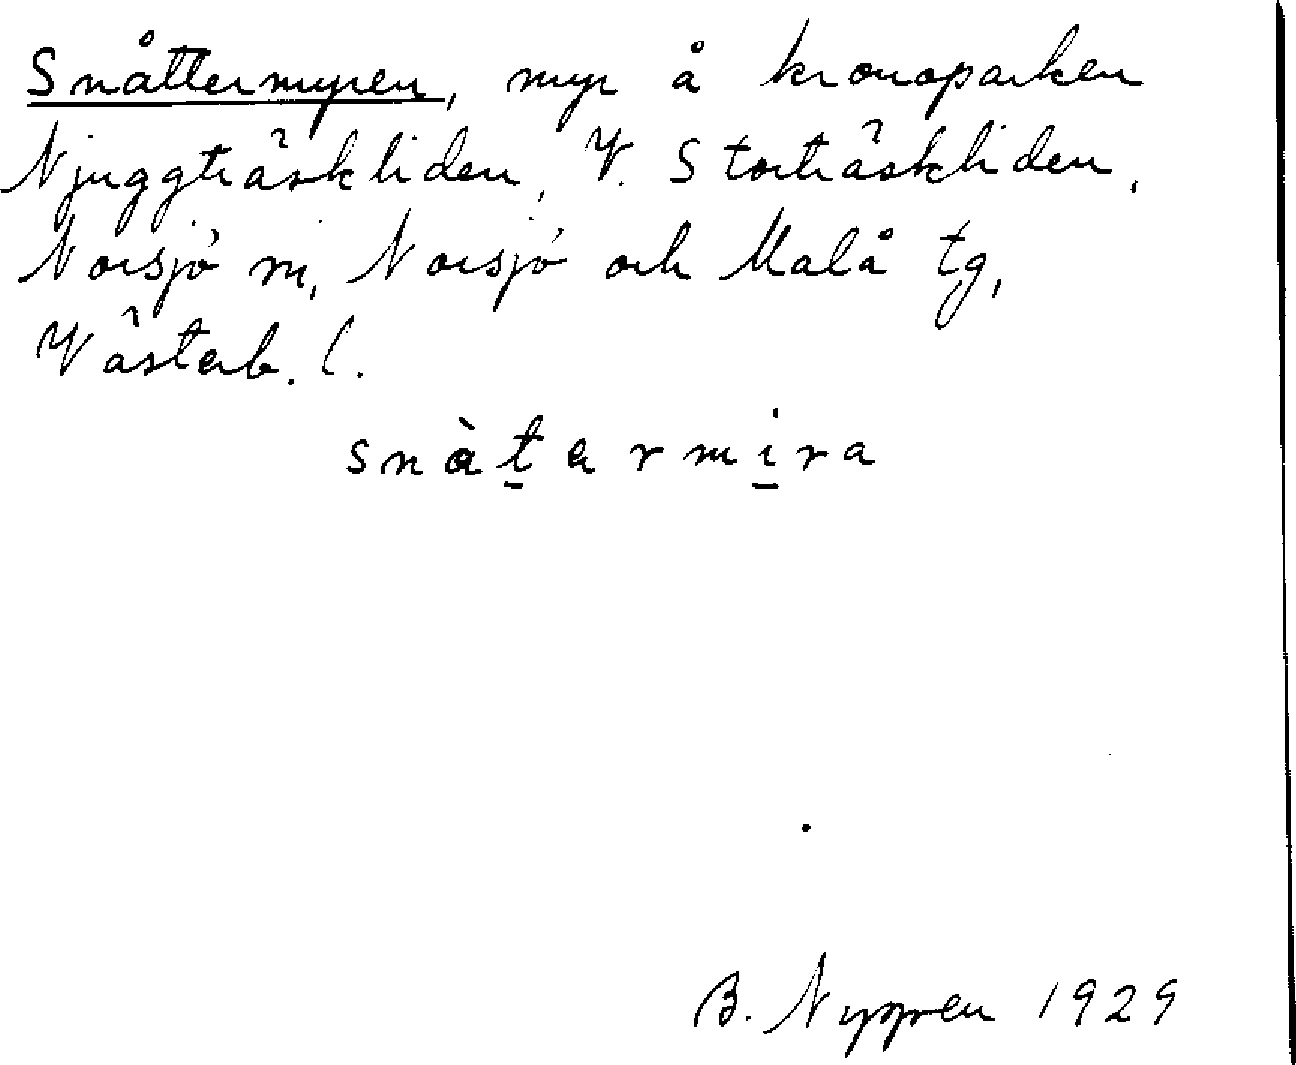 Snåttermyren, myr å kronoparken
Njuggträskliden, V. Storträskliden,
Norsjö m, Norsjö och Malå tg,
Västerb. l.
snàtarmira
B. Nygren 1929